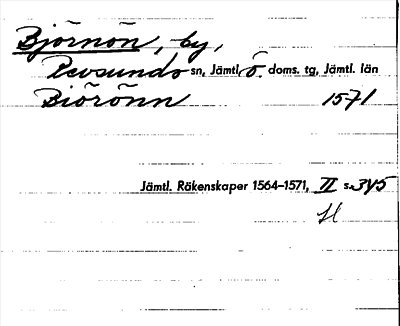 Björnön, by,
Revsunds sn, Jämtl. ö. doms. tg, Jämtl. län
Biörönn 1571
Jämtl. Räkenskaper 1564–1571, II s. 345